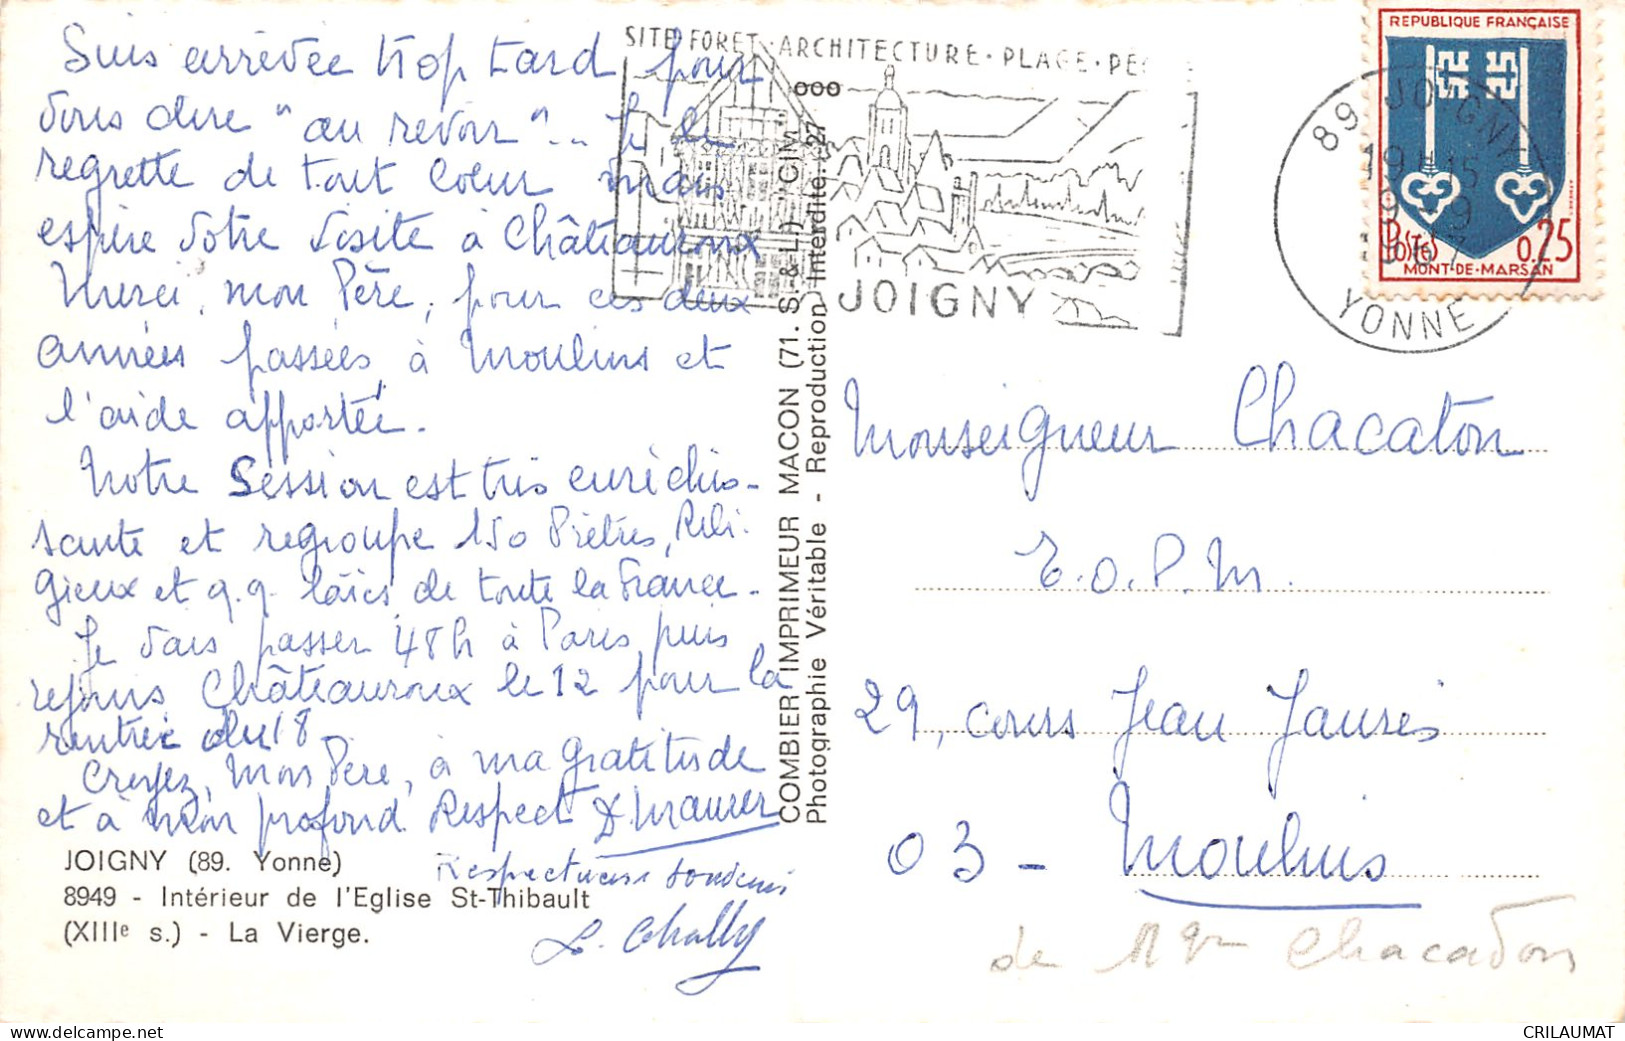 Suis arrivée trop tard pour
vous dire "au revoir"... Je le
regrette de tout coeur mais
espère votre visite à Châteauroux
Merci, mon Père, pour ces deux
années passées à Moulins et
l'aide apportée.
Notre Session est très enrichis-
sante et regroupe 150 Prêtres, Reli-
gieux et q.q. laïcs de toute la France.
Je vais passer 48h à Paris, puis
rejoins Châteauroux le 12 pour la
rentrée du 18
Croyez, Mon Père, à ma gratitude
et à mon profond Respect
Respectueux souvenir
JOIGNY (89. Yonne)
8949 - Intérieur de l'Eglise St-Thibault
(XIIIe s.) - La Vierge.
COMBIER IMPRIMEUR MACON (71. S.-&-L.) "CIM"
Photographie Véritable - Reproduction Interdite. 27
SITE·FORET·ARCHITECTURE·PLAGE·PE
JOIGNY
89 JOIGNY
19H15
9-9
1967
YONNE
REPUBLIQUE FRANÇAISE
POSTES 0,25
MONT-DE-MARSAN
Monseigneur Chacaton
E.O.P.M.
29, cours Jean Jaurès
03 - Moulins
de Mgr Chacaton
CRILAUMAT
www.delcampe.net